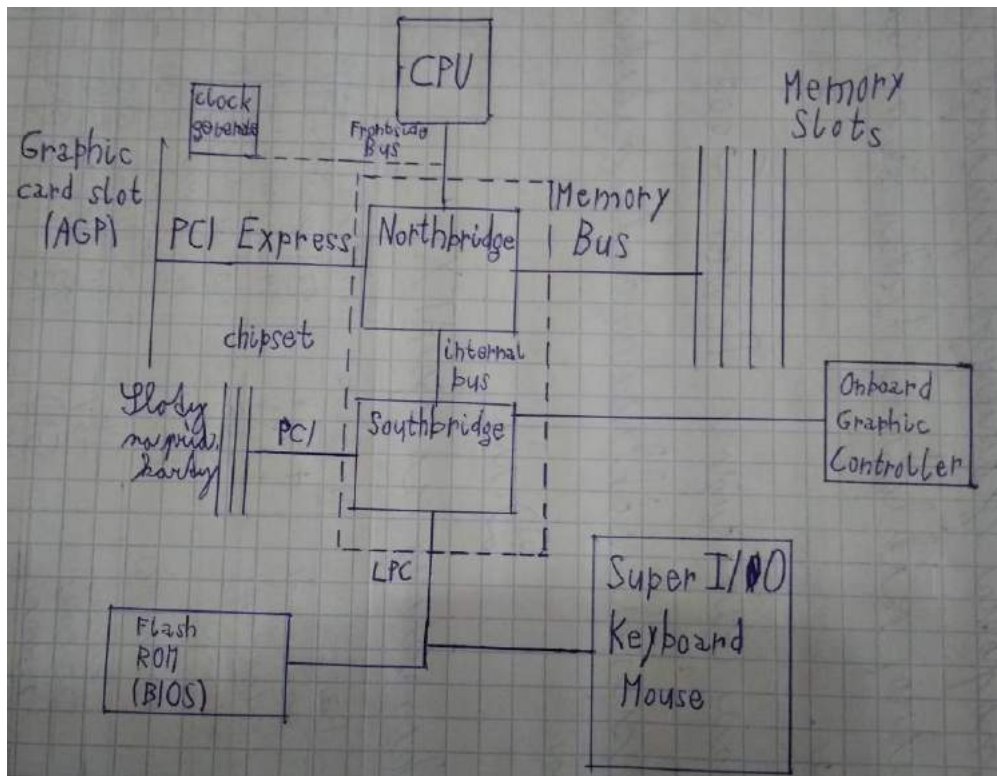 CPU
clock
Frontside
Bus
Memory
Slots
Graphic
card slot
(AGP)
PCI Express
Northbridge
Memory
Bus
chipset
internal
bus
Sloty
na príd.
karty
PCI
Southbridge
Onboard
Graphic
Controller
LPC
Super I/O
Keyboard
Mouse
Flash
ROM
(BIOS)